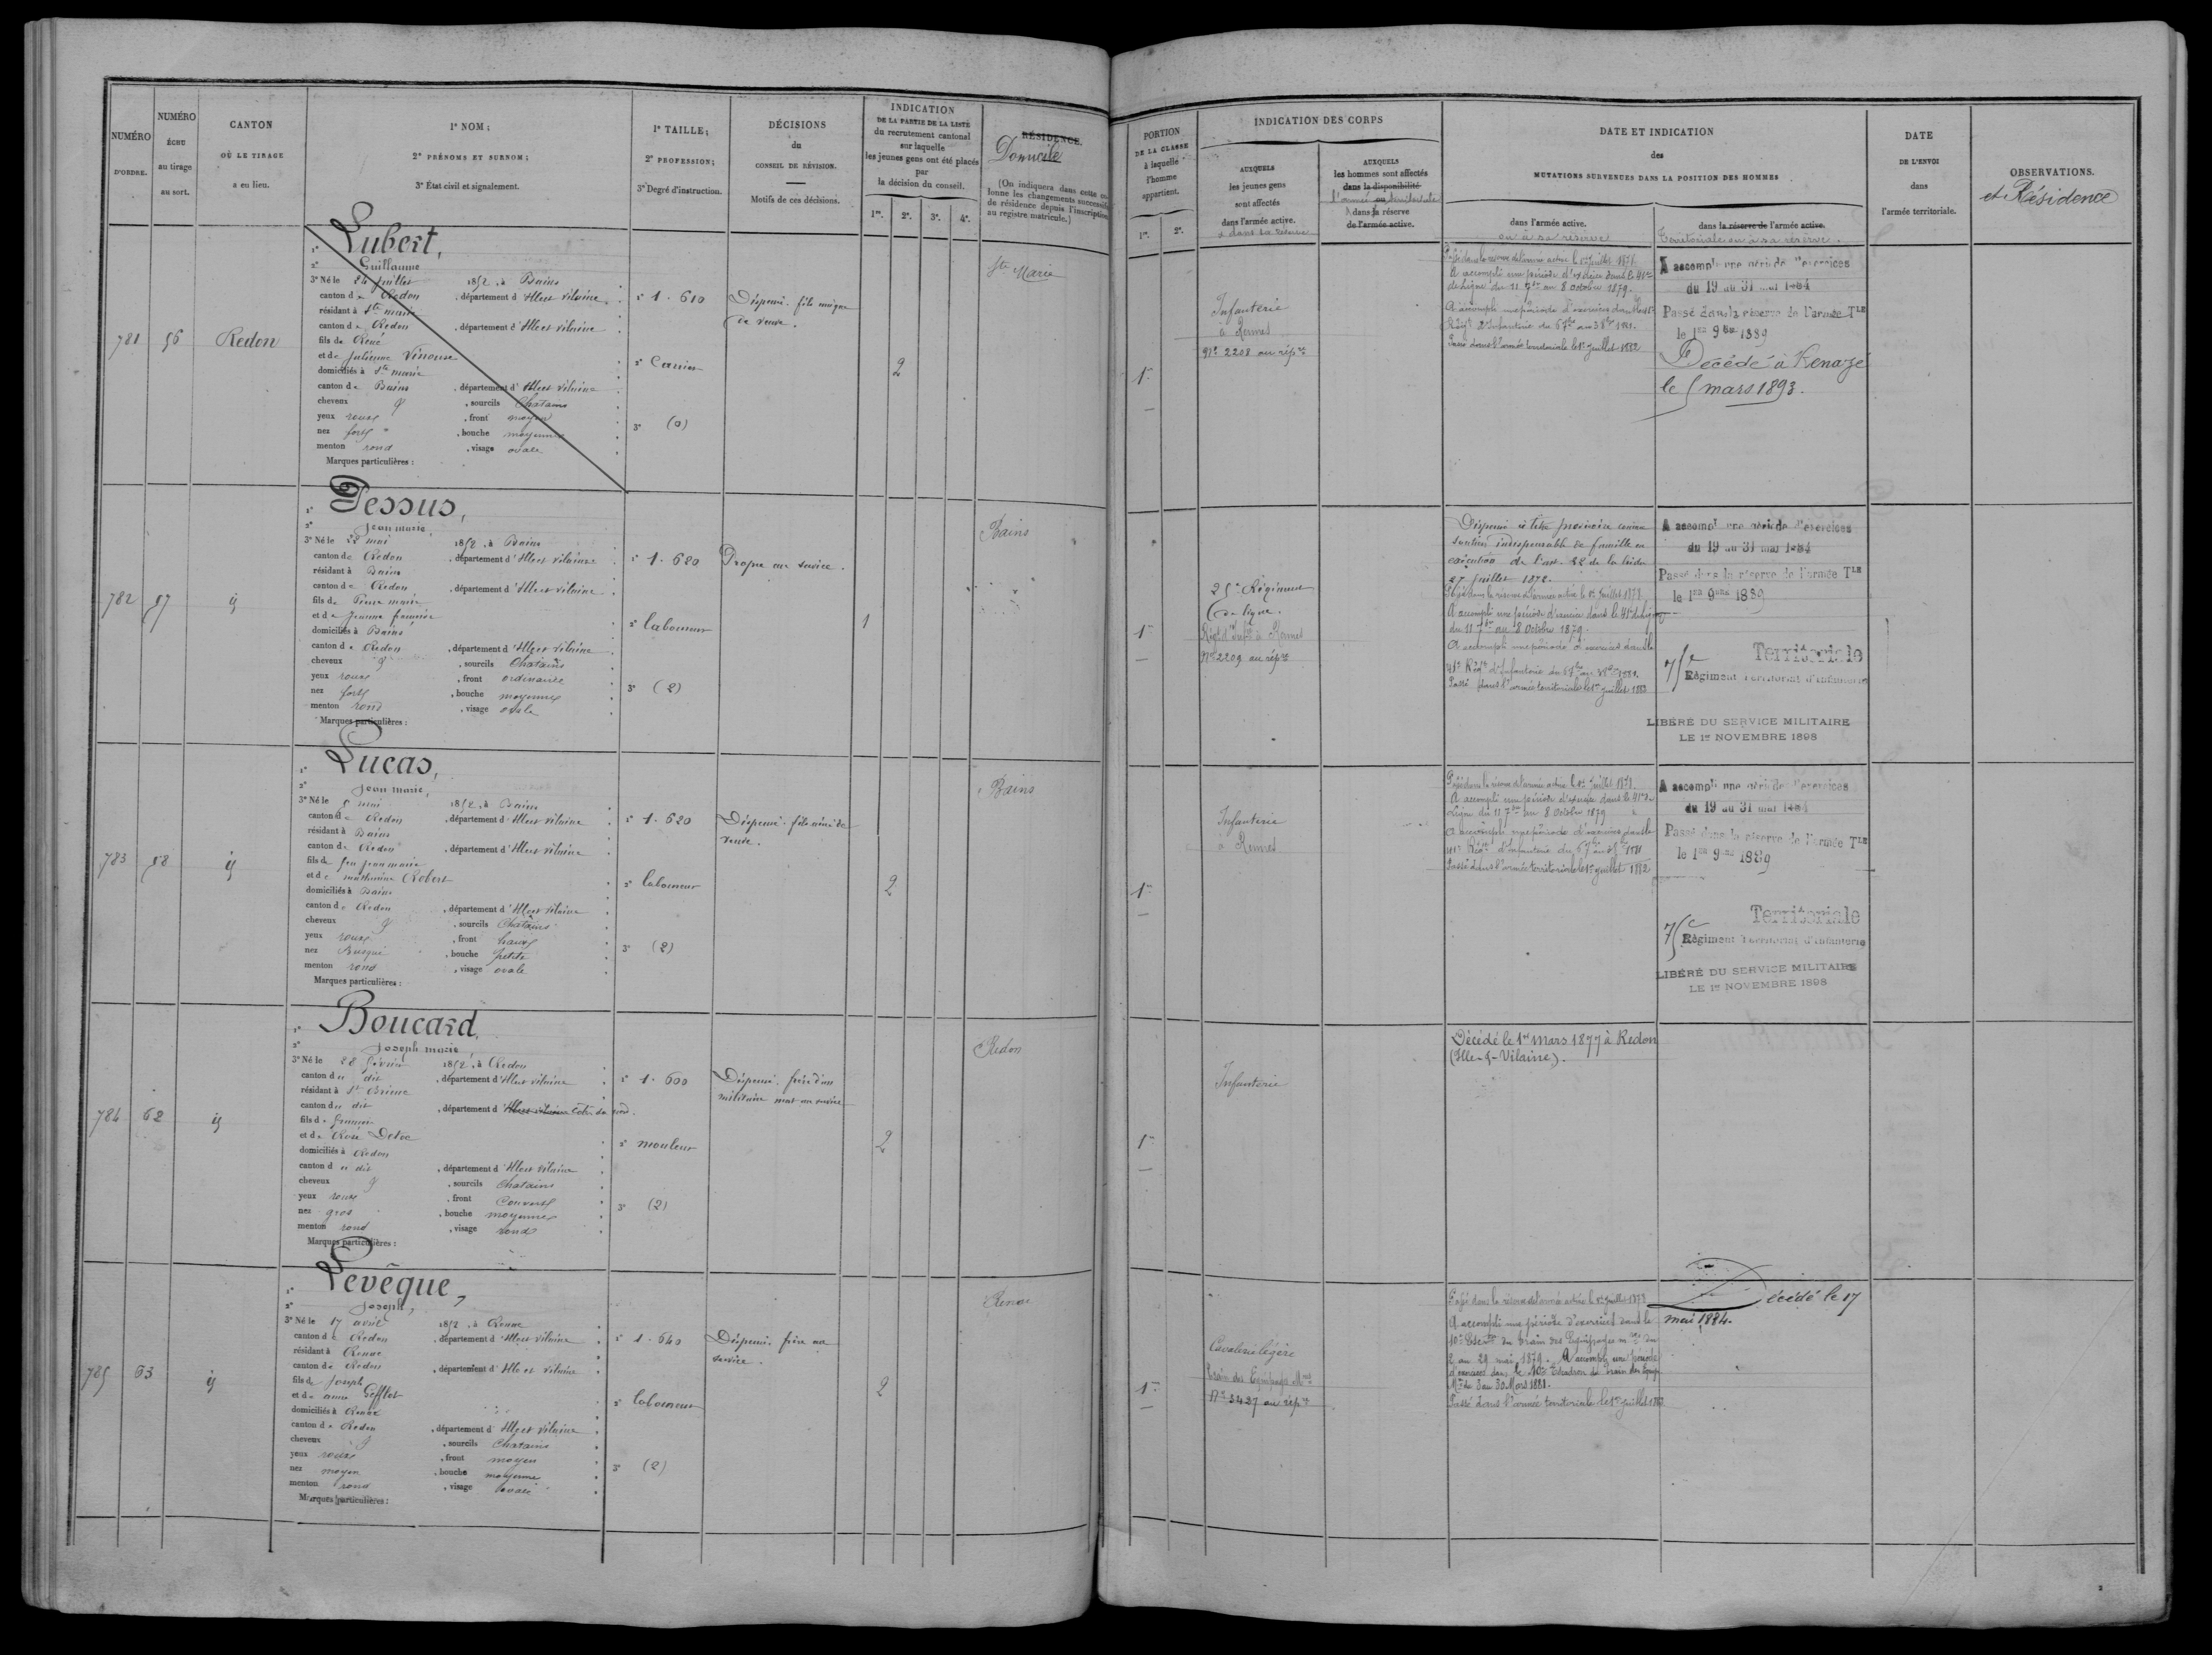 NUMÉRO
D'ORDRE.
NUMÉRO
ÉCHU
au tirage
au sort.
CANTON
OÙ LE TIRAGE
a eu lieu.
1° NOM;
2° PRÉNOMS ET SURNOM;
3° État civil et signalement.
1° TAILLE;
2° PROFESSION;
3° Degré d'instruction.
DÉCISIONS
du
CONSEIL DE RÉVISION.
Motifs de ces décisions.
INDICATION
DE LA PARTIE DE LA LISTE
du recrutement cantonal
sur laquelle
les jeunes gens ont été placés
par
la décision du conseil.
1re. 2e. 3e. 4e.
RÉSIDENCE.
Domicile
(On indiquera dans cette co-
lonne les changements successifs
de résidence depuis l'inscription
au registre matricule.)
PORTION
DE LA CLASSE
à laquelle
l'homme
appartient.
1re. 2e.
INDICATION DES CORPS
AUXQUELS
les jeunes gens
sont affectés
dans l'armée active.
et dans sa réserve
AUXQUELS
les hommes sont affectés
dans la disponibilité
l'armée ou territoriale
dans sa réserve
de l'armée active.
DATE ET INDICATION
des
MUTATIONS SURVENUES DANS LA POSITION DES HOMMES
dans l'armée active.
ou à sa réserve
dans la réserve de l'armée active.
Territoriale ou à sa réserve.
DATE
DE L'ENVOI
dans
l'armée territoriale.
OBSERVATIONS.
et Résidence
781 56 Redon
1° Lubert,
2° Guillaume
3° Né le 24 juillet 1852, à Bains
canton de Redon, département d'Ille et Vilaine
résidant à Ste marie
canton de Redon, département d'Ille et Vilaine
fils de René
et de Julienne Vinouse
domiciliés à Ste marie
canton de Bains, département d'Ille et Vilaine
cheveux, sourcils Chatains
yeux roux, front moyen
nez fort, bouche moyenne
menton rond, visage ovale
Marques particulières :
1° 1.610
2° Carrier
3° (0)
Dispensé. fils unique
de veuve.
2
Ste Marie
1re
Infanterie
à Rennes
No 2208 au répre
Passé dans la réserve de l'armée active le 1er juillet 1878.
A accompli une période d'exercices dans le 41e
de ligne du 11 7bre au 8 Octobre 1879.
A accompli une période d'exercices dans le 41e
Régt d'Infanterie
Passé dans l'armée territoriale le 1er juillet 1882
A accompli une période d'exercices
du 19 au 31 mai 1884
Passé dans la réserve de l'armée TLE
le 1er 9bre 1889
Décédé à Renazé
le 5 mars 1893.
782 57 id
1° Dessus,
2° Jean marie
3° Né le 22 mai 1852, à Bains
canton de Redon, département d'Ille et Vilaine
résidant à Bains
canton de Redon, département d'Ille et Vilaine
fils de Pierre marie
et de Jeanne
domiciliés à Bains
canton de Redon, département d'Ille et Vilaine
cheveux, sourcils Chatains
yeux roux, front ordinaire
nez fort, bouche moyenne
menton rond, visage ovale
Marques particulières :
1° 1.620
2° laboureur
3° (2)
Propre au service.
1
Bains
1re
25e Régiment
de ligne.
Régt d'Infie à Rennes
No 2209 au répre
Dispensé à titre provisoire comme
soutien indispensable de famille en
exécution de l'art. 22 de la loi du
27 Juillet 1872.
Passé dans la réserve de l'armée active le 1er Juillet 1878
A accompli une période d'exercices dans le 41e de ligne
du 11 7bre au 8 Octobre 1879.
A accompli une période d'exercices dans le
41e Régt d'Infanterie
Passé dans l'armée territoriale le 1er juillet 1882
A accompli une période d'exercices
du 19 au 31 mai 1884
Passé dans la réserve de l'armée TLE
le 1er 9bre 1889
Territoriale
75e Régiment Territorial d'Infanterie
LIBÉRÉ DU SERVICE MILITAIRE
LE 1er NOVEMBRE 1898
783 58 id
1° Lucas,
2° Jean marie,
3° Né le 5 mai 1852, à Bains
canton de Redon, département d'Ille et Vilaine
résidant à Bains
canton de Redon, département d'Ille et Vilaine
fils de feu jean marie
et de mathurine Robert
domiciliés à Bains
canton de Redon, département d'Ille et Vilaine
cheveux, sourcils Chatains
yeux roux, front haut
nez Busqué, bouche petite
menton rond, visage ovale
Marques particulières :
1° 1.620
2° laboureur
3° (2)
Dispensé. fils aîné de
veuve.
2
Bains
1re
Infanterie
à Rennes
Passé dans la réserve de l'armée active le 1er Juillet 1878.
A accompli une période d'exercices dans le 41e de
Ligne du 11 7bre au 8 Octobre 1879
A accompli une période d'exercices dans le
41e Régt d'Infanterie
Passé dans l'armée territoriale le 1er juillet 1882
A accompli une période d'exercices
du 19 au 31 mai 1884
Passé dans la réserve de l'armée TLE
le 1er 9bre 1889
Territoriale
75e Régiment Territorial d'Infanterie
LIBÉRÉ DU SERVICE MILITAIRE
LE 1er NOVEMBRE 1898
784 62 id
1° Boucard,
2° Joseph marie
3° Né le 28 février 1852, à Redon
canton du dit, département d'Ille et Vilaine
résidant à St Brieuc
canton du dit, département d'Ille et Vilaine Côtes du nord.
fils de
et de Rose
domiciliés à Redon
canton du dit, département d'Ille et Vilaine
cheveux, sourcils Chatains
yeux roux, front Couvert
nez gros, bouche moyenne
menton rond, visage rond
Marques particulières :
1° 1.600
2° mouleur
3° (2)
Dispensé. frère d'un
militaire mort au service
2
Redon
1re
Infanterie
Décédé le 1er mars 1877 à Redon
(Ille-&-Vilaine).
785 63 id
1° Levêque,
2° Joseph,
3° Né le 17 avril 1852, à Renac
canton de Redon, département d'Ille et Vilaine
résidant à Renac
canton de Redon, département d'Ille et Vilaine
fils de Joseph
et de anne Gefflot
domiciliés à Renac
canton de Redon, département d'Ille et Vilaine
cheveux, sourcils Chatains
yeux roux, front moyen
nez moyen, bouche moyenne
menton rond, visage ovale
Marques particulières :
1° 1.640
2° laboureur
3° (2)
Dispensé. frère au
service.
2
Renac
1re
Cavalerie légère
Train des Equipages Mres
No 3427 au répre
Passé dans la réserve de l'armée active le 1er Juillet 1878
A accompli une période d'exercices dans le
10e Escon du train des Equipages mres du
2 au 29 mai 1879. A accompli une période
d'exercices dans le 10e Escadron du train des Equip.
Mres du 3 au 30 Mars 1881.
Passé dans l'armée territoriale le 1er juillet 1882
Décédé le 17
mai 1884.